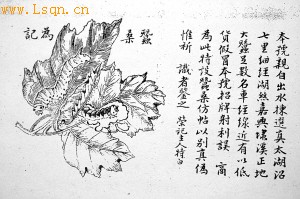 www.Lsqn.cn
本號親自出水揀選真太湖沿
七里細經湖絲嘉興塘溪正地
大蠶名車經線近有以低
貨假冒本號招牌射利誤 商
為此特設蠶桑仿帖以別真偽
惟祈 識者鑒之 榮記主人特白
蠶桑
為記